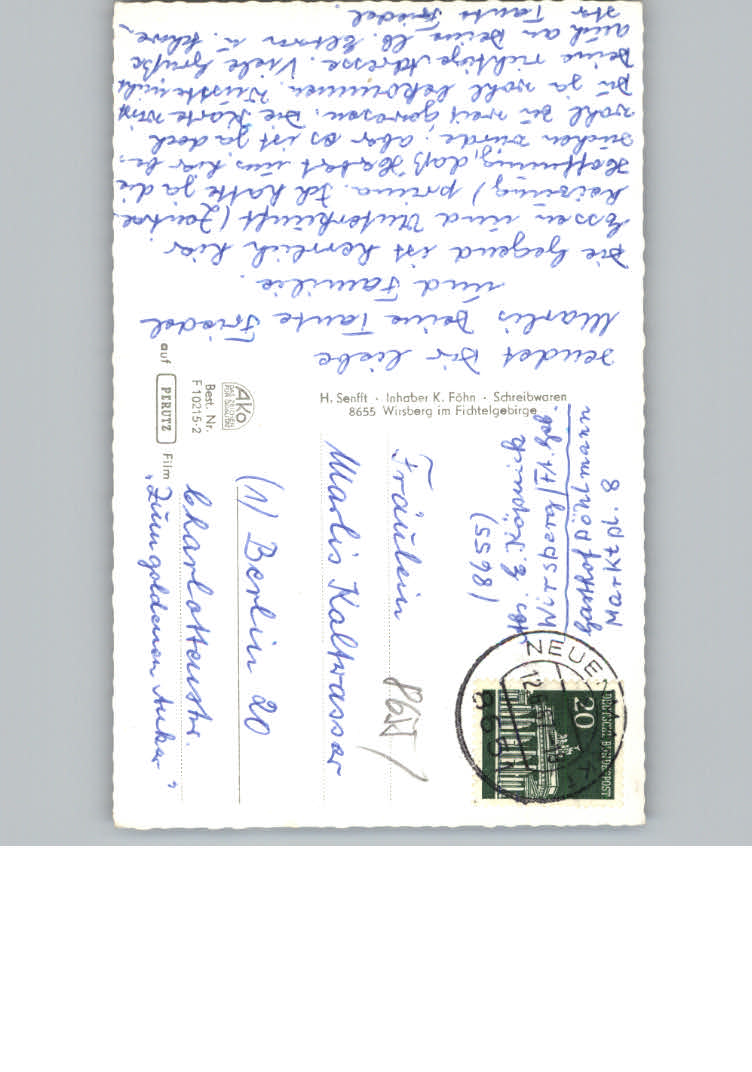 sendet Dir liebe
Marlis Deine Tante Friedel
und Familie.
Die Gegend ist herrlich hier
Essen und Unterkunft (Zentr.
heizung) prima. Ich hatte ja die
Hoffnung, daß Herbert uns hier be-
suchen würde, aber es ist ja doch
wohl zu weit gewesen. Die Karte wirst
Du ja wohl bekommen. Wusste nicht
Deine richtige Adresse. Viele Grüße
auch an Deine lb. Eltern u.
Tante Friedel
H. Senfft · Inhaber K. Föhn · Schreibwaren
8655 Wirsberg im Fichtelgebirge
Ako
Best. Nr.
F 10215-2
auf PERUTZ Film
Marktpl. 8
Gasthof Pöhlmann
Wirsberg
(8655)
Fräulein
Marlis Kaltwasser
(1) Berlin 20
Charlottenstr.
"Zum goldenen Anker"
8655
20
DEUTSCHE BUNDESPOST
NEUEN